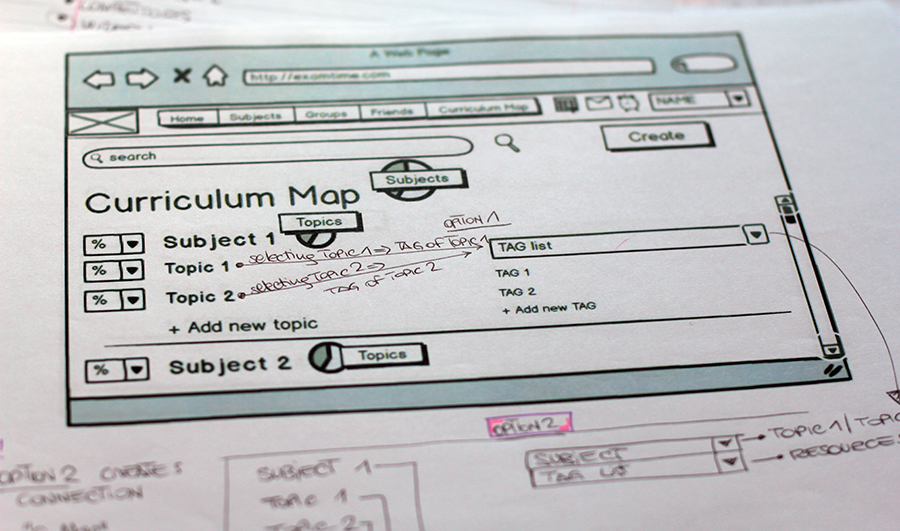 A Web Page
http://examtime.com
Home Subjects Groups Friends Curriculum Map NAME
search
Create
Curriculum Map
Subjects
Topics
OPTION 1
% Subject 1
% Topic 1 selecting Topic 1 => TAG of Topic 1
TAG list
% Topic 2 selecting Topic 2 =>
TAG of Topic 2
TAG 1
TAG 2
+ Add new TAG
+ Add new topic
% Subject 2 Topics
OPTION 2
OPTION 2 CREATES
CONNECTION
SUBJECT 1
TOPIC 1
TOPIC 2
SUBJECT
TAG LIS
TOPIC 1/TOPIC
RESOURCES